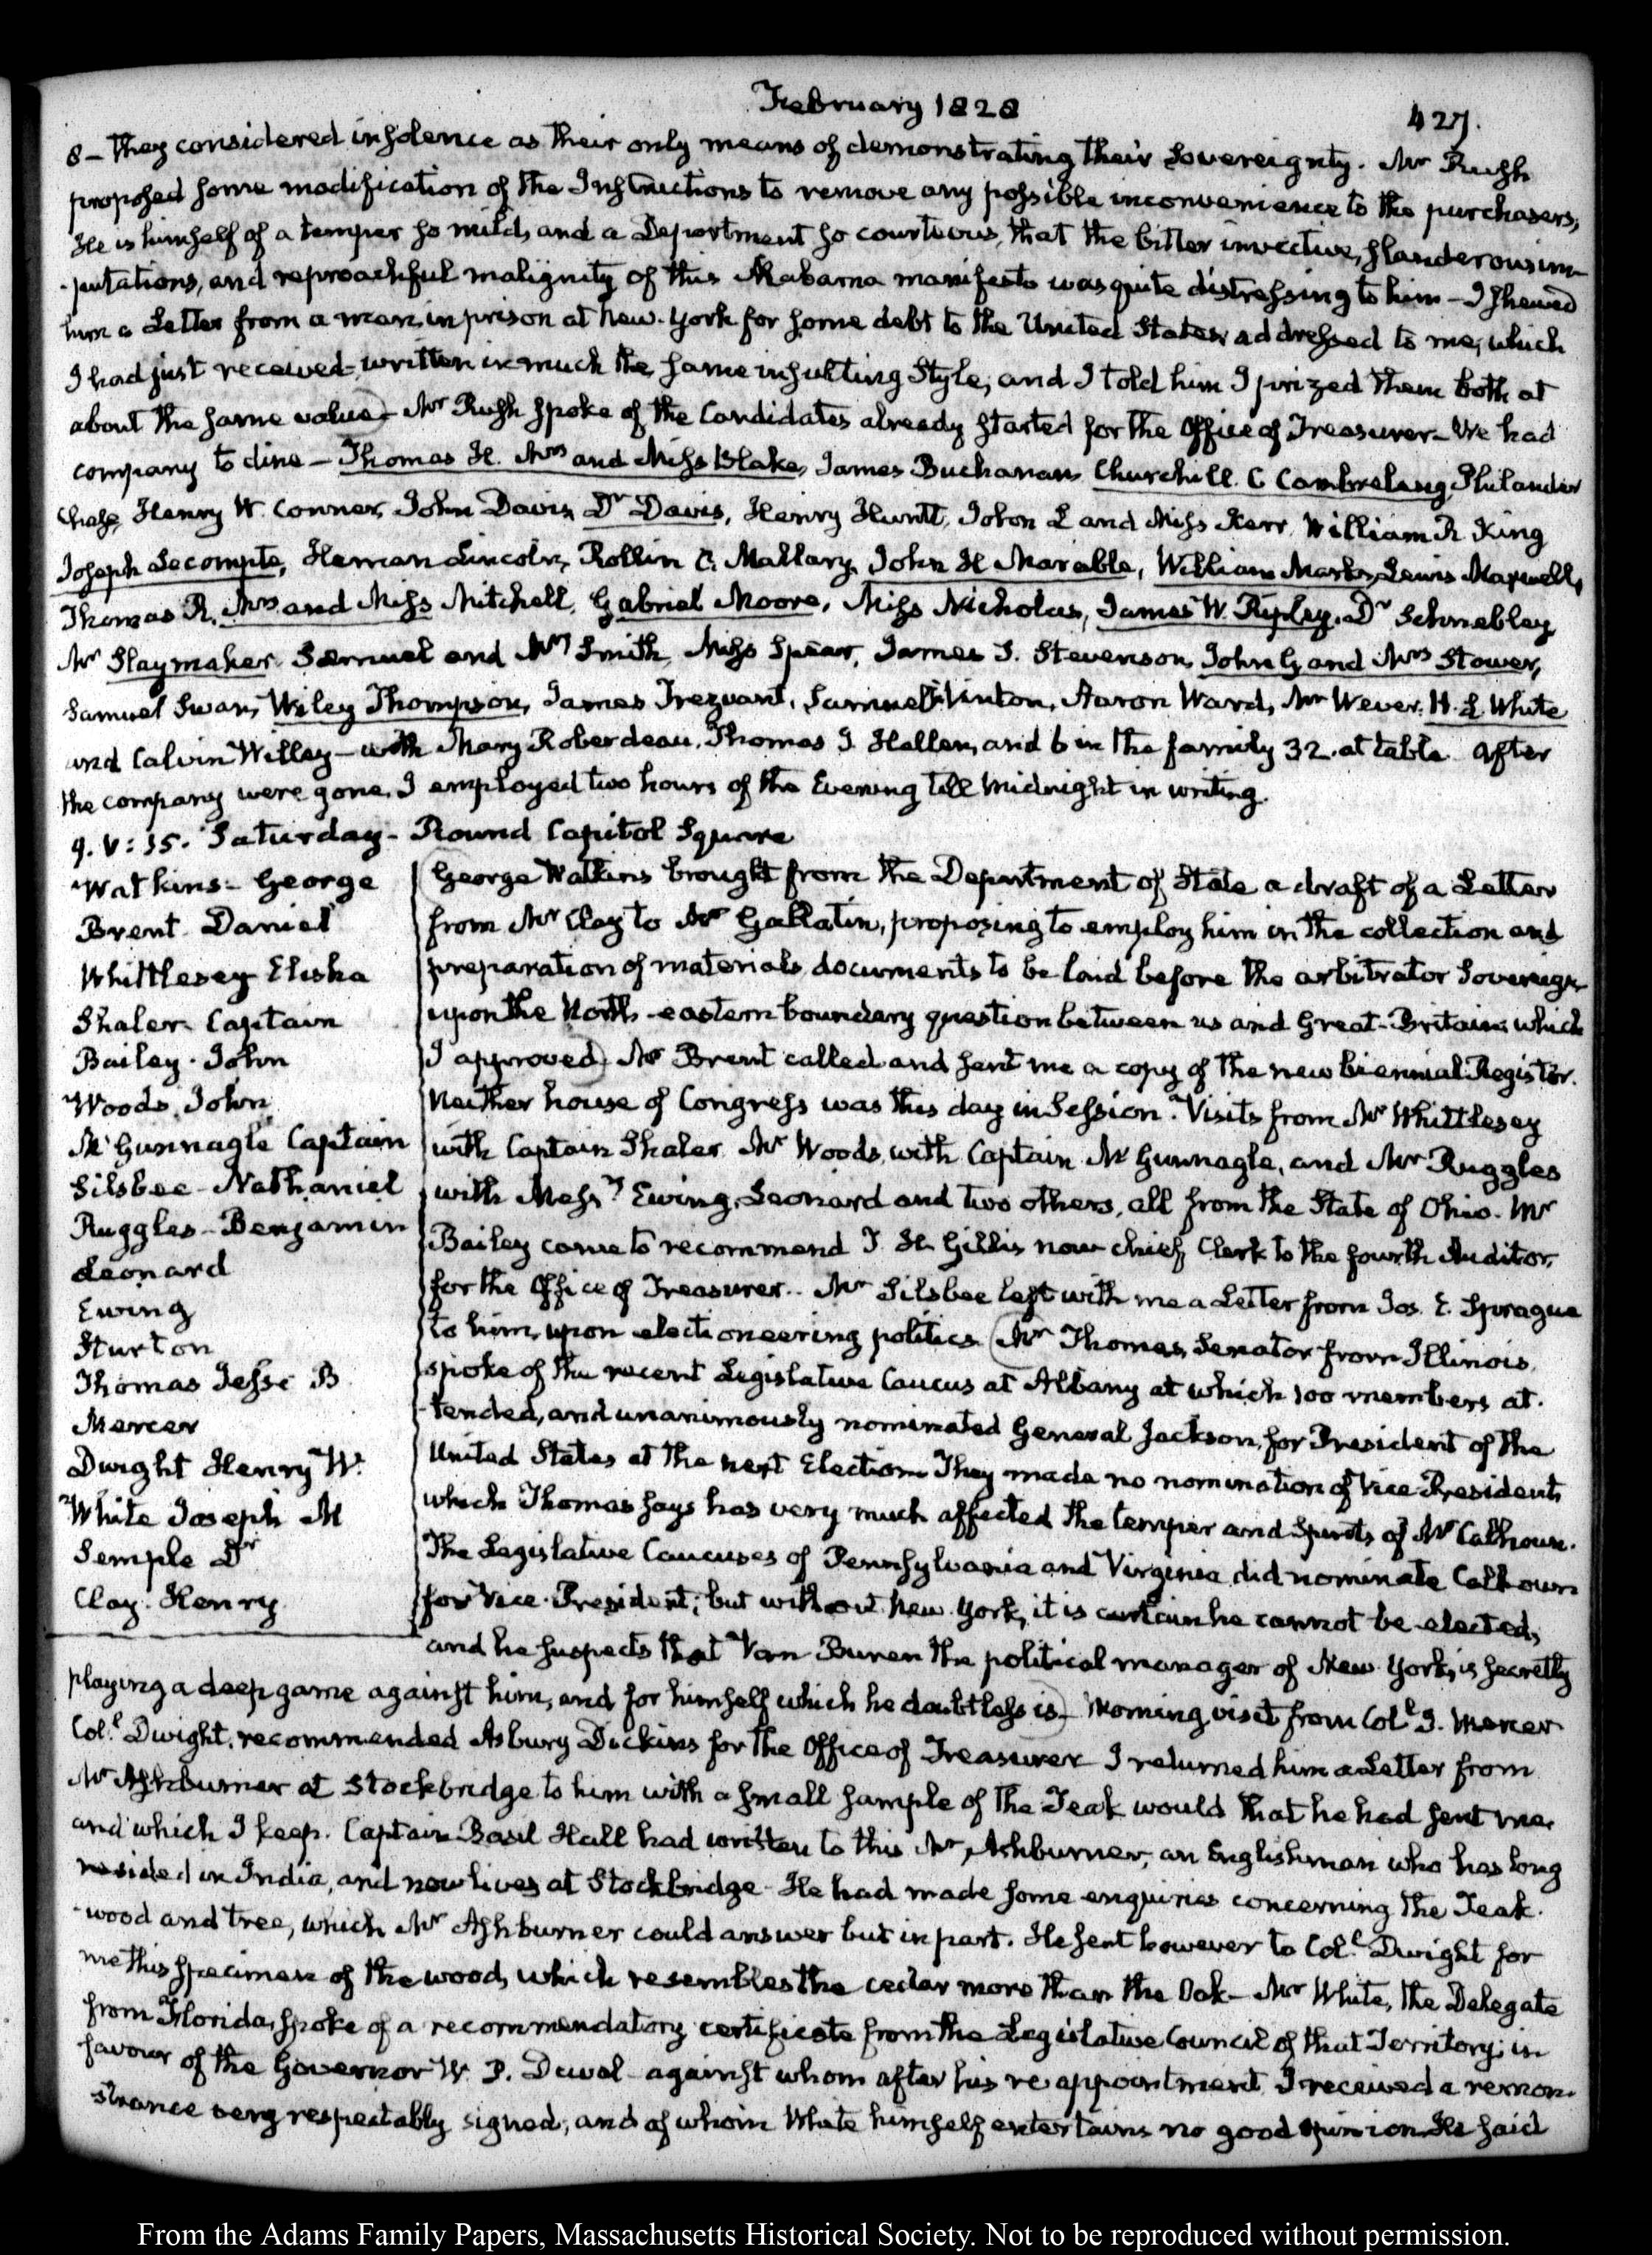 February 1828
427.
8 – they considered insolence as their only means of demonstrating their Sovereignty. Mr Rush
proposed some modification of the Instructions to remove any possible inconvenience to the purchasers,
He is himself of a temper so mild, and a Deportment so courteous, that the bitter invective, slanderous im-
-putations, and reproachful malignity of this Alabama manifesto was quite distressing to him – I shewed
him a Letter from a man in prison at New-York for some debt to the United States, addressed to me, which
I had just received, written in much the same insulting Style, and I told him I prized them both at
about the same value) – Mr Rush spoke of the Candidates already started for the Office of Treasurer – We had
company to dine – Thomas H. Mrs and Miss Blake, James Buchanan, Churchill. C Cambreleng, Philander
Chase, Henry W. Conner, John Davis, Dr Davis, Henry Huntt, John L and Miss Kerr, William R King
Joseph Lecompte, Heman Lincoln, Rollin C. Mallary, John H Marable, William Marks, Lewis Maxwell,
Thomas R. Mrs and Miss Mitchell, Gabriel Moore, Miss Nicholas, James W. Ripley, Dr Schnebley
Mr Slaymaker, Samuel and Mrs Smith, Miss Spear, James S. Stevenson, John G and Mrs Stower,
Samuel Swan, Wiley Thompson, James Trezvant, Samuel Vinton, Aaron Ward, Mr Wever, H. L White
and Calvin Willey – with Mary Roberdeau, Thomas J. Hellen, and 6 in the family 32. at table. After
the company were gone, I employed two hours of the Evening till Midnight in writing.
9. V: 15. Saturday – Round Capitol Square
Watkins – George
Brent Daniel
Whittlesey Elisha
Shaler Captain
Bailey. John
Woods. John
McGunnagle Captain
Silsbee – Nathaniel
Ruggles – Benjamin
Leonard
Ewing
Sturton
Thomas Jesse B
Mercer
Dwight Henry W.
White Joseph M
Semple Dr
Clay. Henry
George Watkins brought from the Department of State a draft of a Letter
from Mr Clay to Mr Gallatin, proposing to employ him in the collection and
preparation of materials, documents to be laid before the arbitrator Sovereign
upon the North-eastern boundary question between us and Great-Britain; which
I approved) Mr Brent called and sent me a copy of the new biennial Register.
Neither house of Congress was this day in Session. Visits from Mr Whittlesey
with Captain Shaler, Mr Woods, with Captain McGunnagle, and Mr Ruggles
with Messrs Ewing, Leonard and two others, all from the State of Ohio. Mr
Bailey came to recommend T. H. Gillis now chief Clerk to the fourth Auditor,
for the Office of Treasurer.. Mr Silsbee left with me a Letter from Jos. E. Sprague
to him, upon electioneering politics (Mr Thomas, Senator from Illinois,
spoke of the recent Legislative Caucus at Albany at which 100 members at-
-tended, and unanimously nominated General Jackson, for President of the
United States at the next Election. They made no nomination of Vice-President
which Thomas says has very much affected the temper and Spirits of Mr Calhoun.
The Legislative Caucuses of Pennsylvania and Virginia did nominate Calhoun
for Vice-President; but without New-York, it is certain he cannot be elected,
and he suspects that Van Buren the political manager of New-York, is secretly
playing a deep game against him, and for himself which he doubtless is) – Morning visit from Coll J. Mercer
Coll Dwight, recommended Asbury Dickins for the Office of Treasurer. I returned him a Letter from
Mr Ashburner at Stockbridge to him with a small sample of the Teak would that he had sent me,
and which I keep. Captain Basil Hall had written to this Mr Ashburner, an Englishman who has long
resided in India, and now lives at Stockbridge – He had made some enquiries concerning the Teak-
-wood and tree, which Mr Ashburner could answer but in part. He sent however to Coll Dwight for
me this specimen of the wood, which resembles the cedar more than the Oak – Mr White, the Delegate
from Florida, spoke of a recommendatory certificate from the Legislative Council of that Territory, in
favour of the Governor W. P. Duval – against whom after his reappointment I received a remon-
strance very respectably signed, and of whom White himself entertains no good opinion. He said
From the Adams Family Papers, Massachusetts Historical Society. Not to be reproduced without permission.